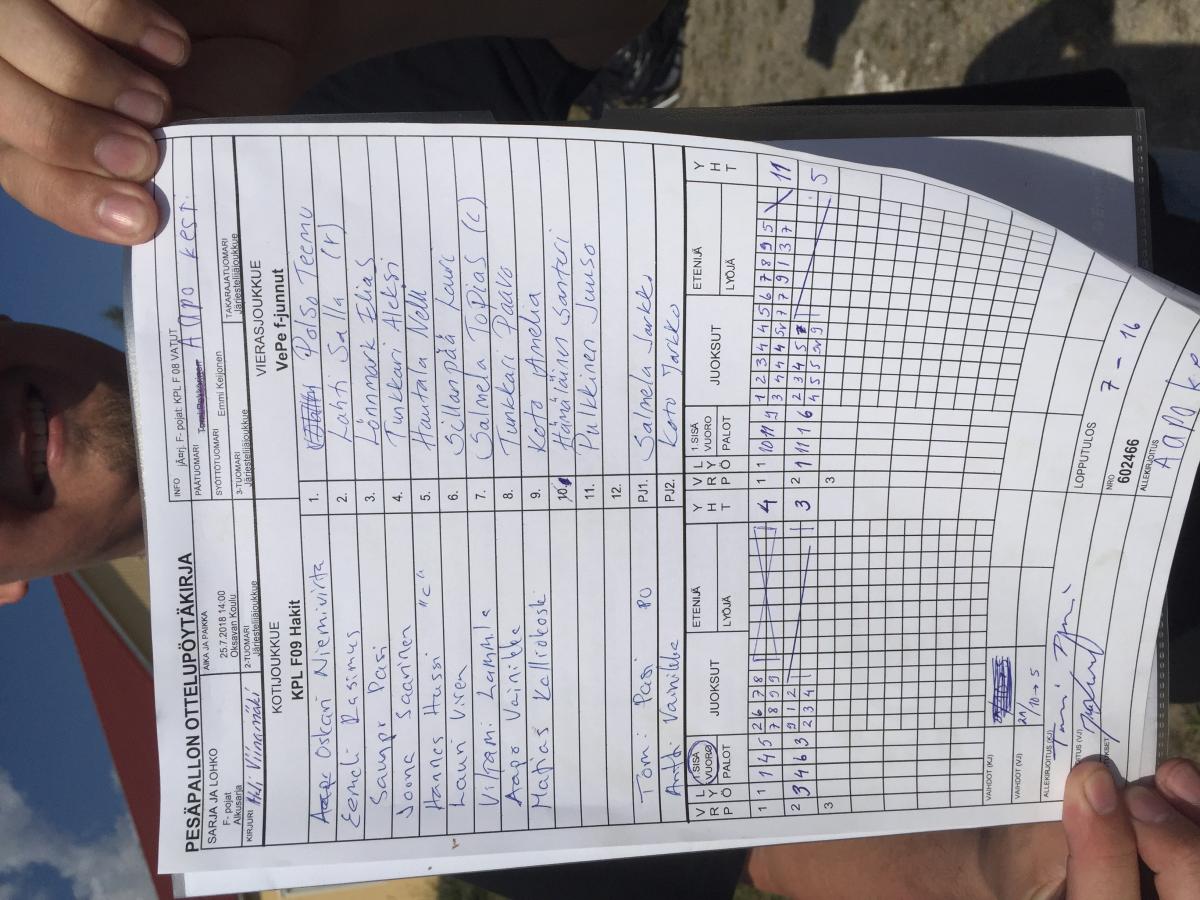 PESÄPALLON OTTELUPÖYTÄKIRJA
SARJA JA LOHKO
F- pojat
Alkusarja
AIKA JA PAIKKA
25.7.2018 14:00
Oksavan Koulu
INFO jÄrj. F- pojat: KPL F 08 VATUT
PÄÄTUOMARI Aapo Kest.
SYÖTTÖTUOMARI Emmi Keijonen
KIRJURI Viinamäki
2-TUOMARI
Järjestelijäjoukkue
3-TUOMARI
Järjestelijäjoukkue
TAKARAJATUOMARI
Järjestelijäjoukkue
KOTIJOUKKUE
KPL F09 Hakit
VIERASJOUKKUE
VePe f-junnut
Oskari Niemivirta 1. Polso Teemu
Eemeli Rasimus 2. Lahti Salla (r)
Sampo Pasi 3. Lönnmark Elias
Joona Saarinen 4. Tunkkari Aleksi
Hannes Hussi "c" 5. Hautala Nelli
Lauri Viren 6. Sillanpää Lauri
Vihtami Lammela 7. Salmela Topias (c)
Aapo Vainikka 8. Tunkkari Paavo
Matias Kalliokoski 9. Koto Amelia
10. Hämäläinen Santeri
11. Pulkkinen Juuso
12.
Tomi Pasi PJ1. Salmela Jarkko
Antti Vainikka PJ2. Koto Jarkko
VRO LYÖ 1.SISÄVUORO PALOT JUOKSUT ETENIJÄ LYÖJÄ YHT
VRO LYÖ 1.SISÄVUORO PALOT JUOKSUT ETENIJÄ LYÖJÄ YHT
1 1 1 4 5 2 6 7 8 4
7 8 9 9
2 3 4 6 3 9 1 2 3
2 3 4
3
1 1 10 11 9 1 2 3 4 4 5 6 7 8 9 5 11
2 1 11 1 6 5
3
VAIHDOT (KJ)
VAIHDOT (VJ) 2A/10→5
LOPPUTULOS 7 - 16
ALLEKIRJOITUS (KJ) Tomi Pasi
NRO
602466
ALLEKIRJOITUS
Aapo Ke